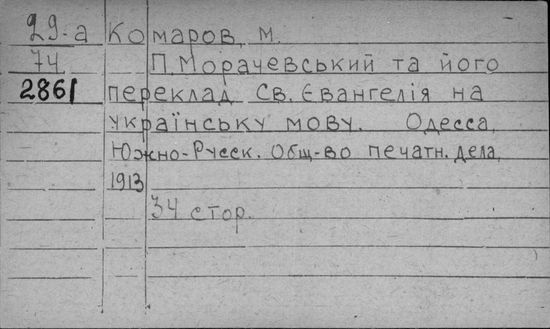 29-а Комаров, М.
74 П. Морачевський та його
2861 переклад Св. Євангелія на
українську мову. Одесса,
Южно-Русск. Общ-во печатн. дела,
1913
34 стор.